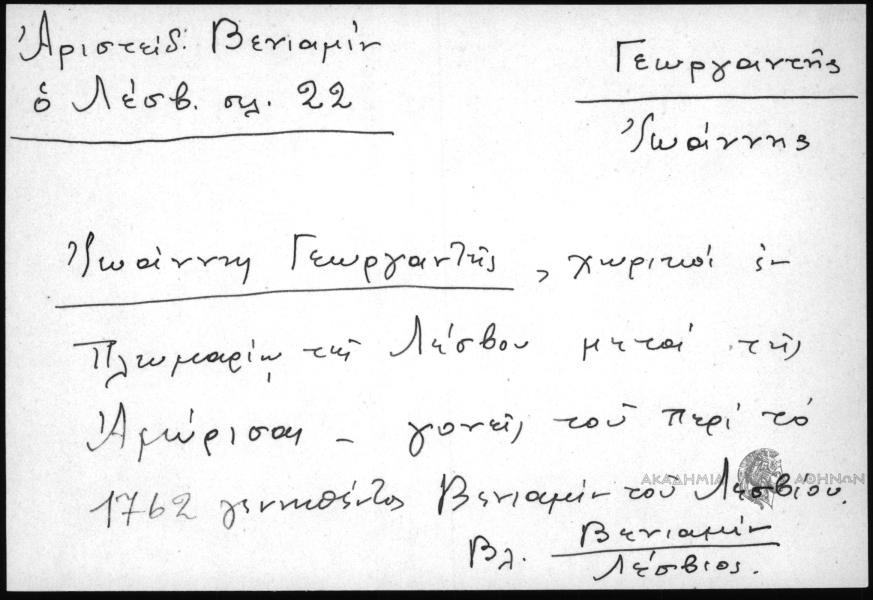 Ἀριστείδ. Βενιαμίν
ὁ Λέσβ. σελ. 22
Γεωργαντῆς
Ἰωάννης
Ἰωάννης Γεωργαντῆς, χωρικοί ἐν
Πλωμαρίῳ τῆς Λέσβου μετά τῆς
Ἀμύρισσας – γονεῖς τοῦ περί τό
1762 γεννηθέντος Βενιαμίν τοῦ Λεσβίου.
Βλ. Βενιαμίν
Λέσβιος.
ΑΚΑΔΗΜΙΑ ΑΘΗΝΩΝ